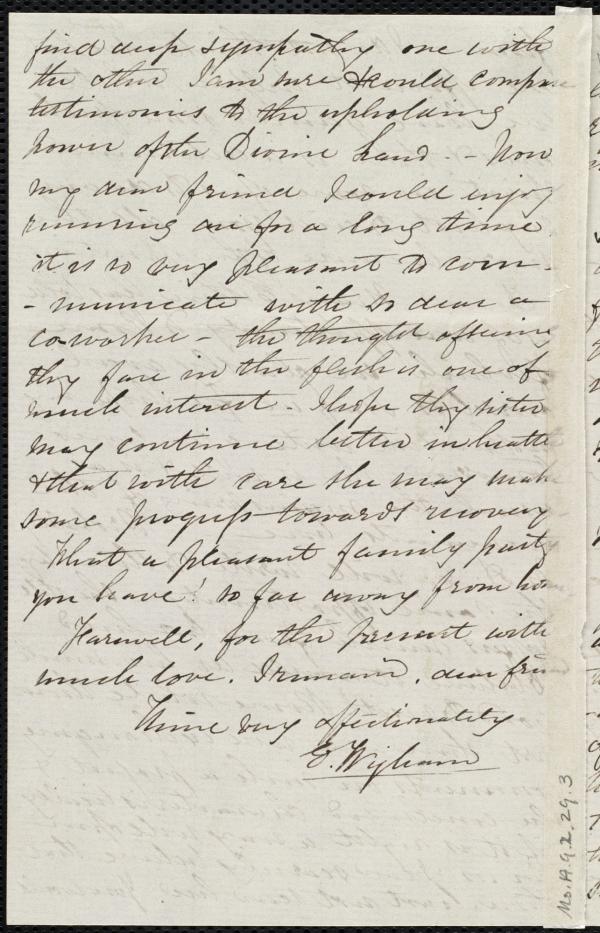 find deep sympathy one with
the other I am sure & could compare
testimonies to the upholding
power of the Divine hand. - Now
my dear friend I could enjoy
running on for a long time
it is so very pleasant to com-
-municate with so dear a
co-worker - the thought of seeing
thy face in the flesh is one of
much interest - I hope thy sister
may continue better in health
& that with care she may make
some progress towards recovery
What a pleasant family party
you have! so far away from home
Farewell, for the present with
much love. I remain, dear
Thine very affectionately
E. Wigham
Ms.A.9.2.29.3